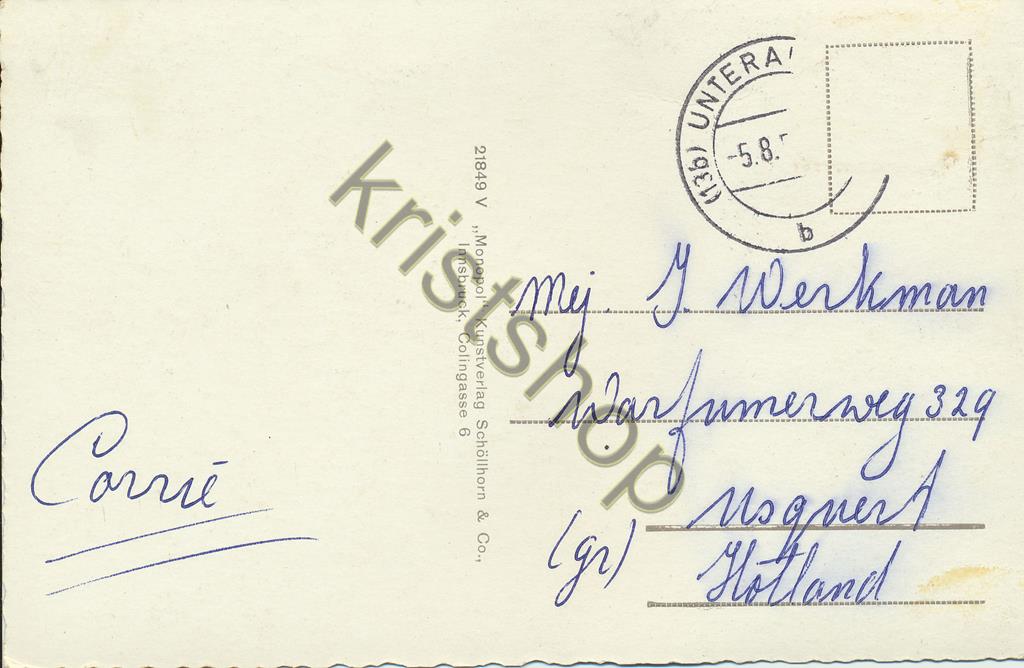 (13b) UNTERA
-5.8.
b
21849 V „Monopol" Kunstverlag Schöllhorn & Co.,
Innsbruck, Colingasse 6
kristshop
Mej. J. Werkman
Warfumerweg 329
Usquert
(gr) Holland
Corrie